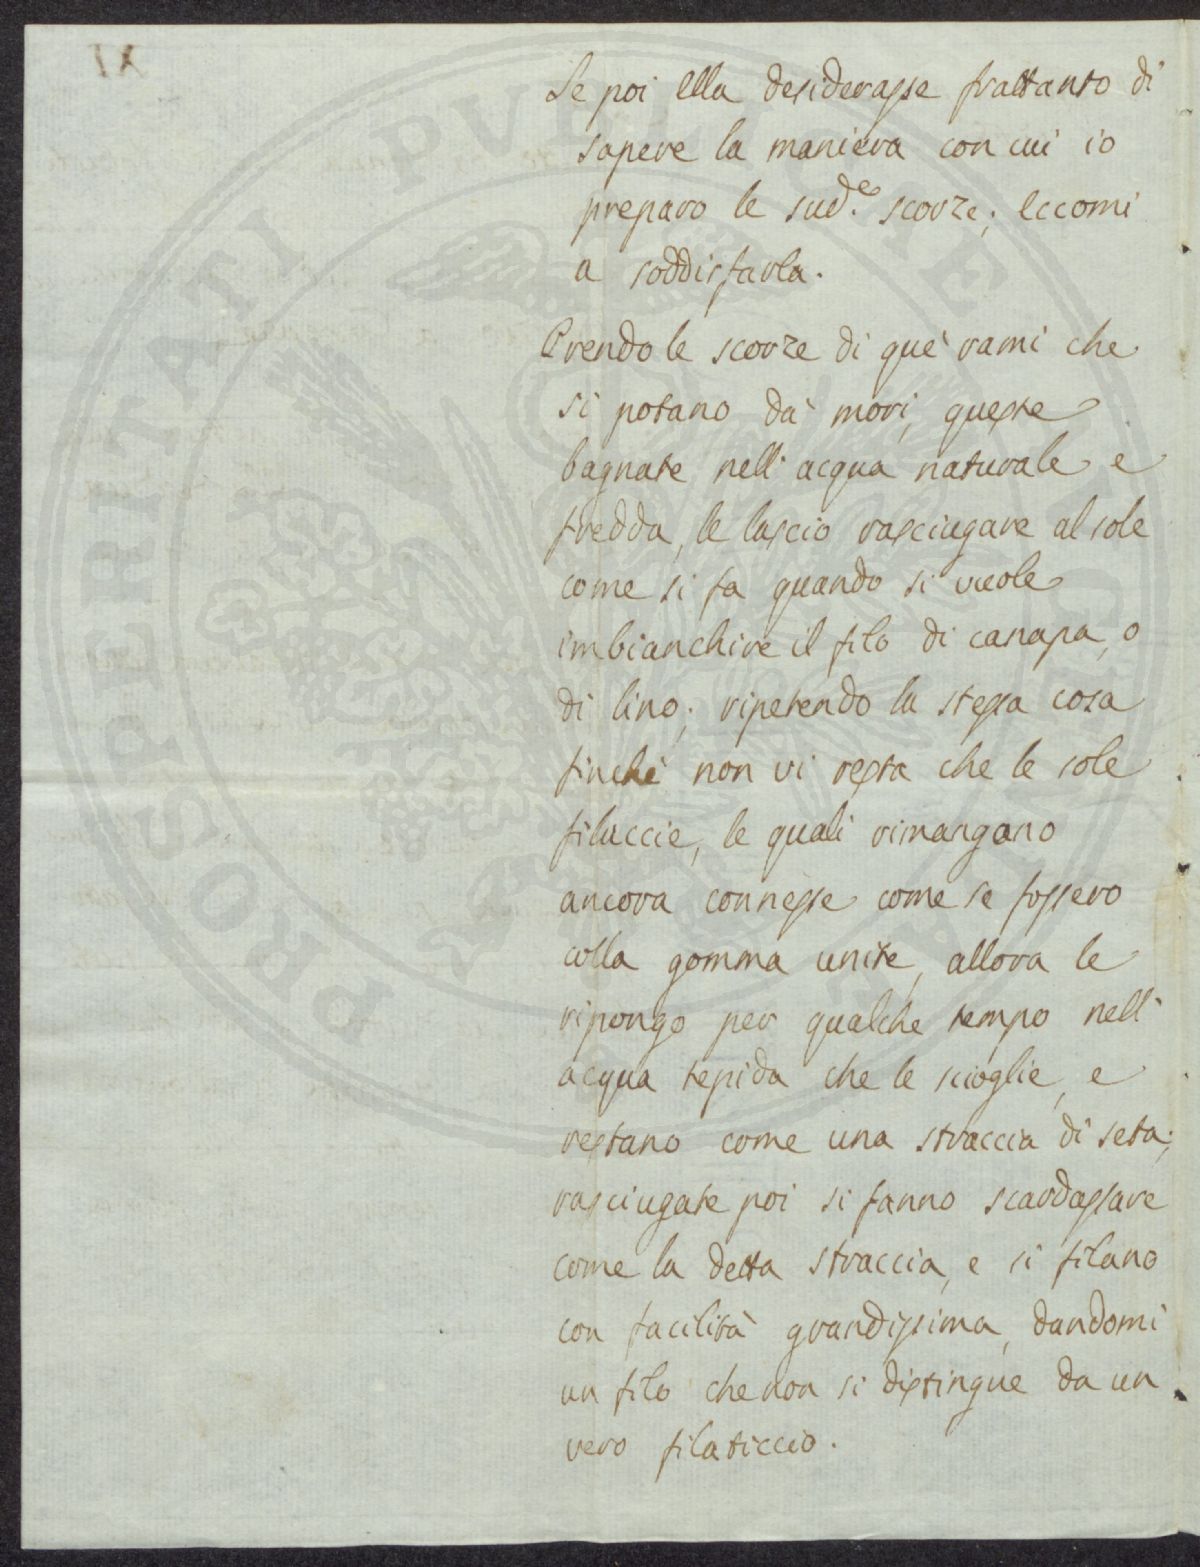 Se poi Ella desiderasse frattanto di
sapere la maniera con cui io
preparo le sud.e scorze; Eccomi
a soddisfarla.
Prendo le scorze di que' rami che
si potano da' mori, queste
bagnate nell' acqua naturale e
fredda, le lascio rasciugare al sole
come si fa quando si vuole
imbianchire il filo di canapa, o
di lino; ripetendo la stessa cosa
finchè non vi resta che le sole
filuccie, le quali rimangano
ancora connesse come se fossero
colla gomma unite, allora le
ripongo per qualche tempo nell'
acqua tepida che le scioglie, e
restano come una straccia di seta;
rasciugate poi si fanno scardassare
come la detta straccia, e si filano
con facilità grandissima, dandomi
un filo che non si distingue da un
vero filaticcio.
PROSPERITATI PVBLICAE AVGENDAE